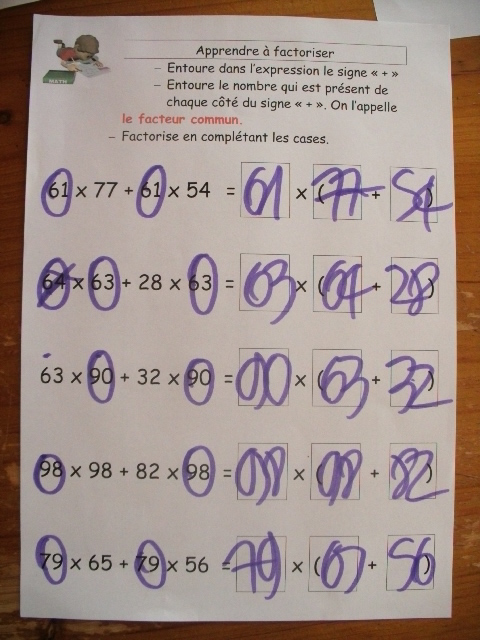 MATH
Apprendre à factoriser
– Entoure dans l'expression le signe « + »
– Entoure le nombre qui est présent de
chaque côté du signe « + ». On l'appelle
le facteur commun.
– Factorise en complétant les cases.
61 x 77 + 61 x 54 = 61 x (77 + 54)
64 x 63 + 28 x 63 = 63 x (64 + 28)
63 x 90 + 32 x 90 = 90 x (63 + 32)
98 x 98 + 82 x 98 = 98 x (98 + 82)
79 x 65 + 79 x 56 = 79 x (65 + 56)